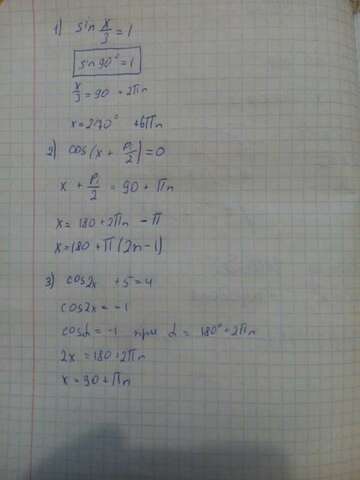 1) sin x/3 = 1
sin 90° = 1
x/3 = 90 + 2πn
x = 270° + 6πn
2) cos(x + pi/2) = 0
x + pi/2 = 90 + πn
x = 180 + 2πn - π
x = 180 + π(2n - 1)
3) cos2x + 5 = 4
cos2x = -1
cosα = -1 при α = 180° + 2πn
2x = 180 + 2πn
x = 90 + πn